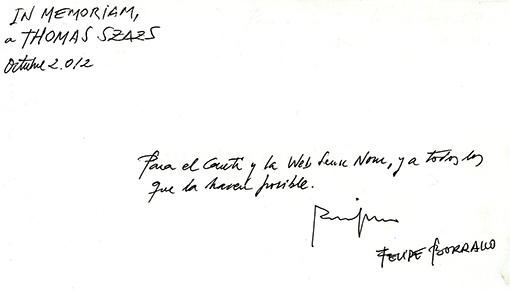 IN MEMORIAM,
a THOMAS SZAZS
Octubre 2.012
Para el Comité y la Web Sense Nom, y a todos los
que la hacen posible.
FELIPE BORRALLO